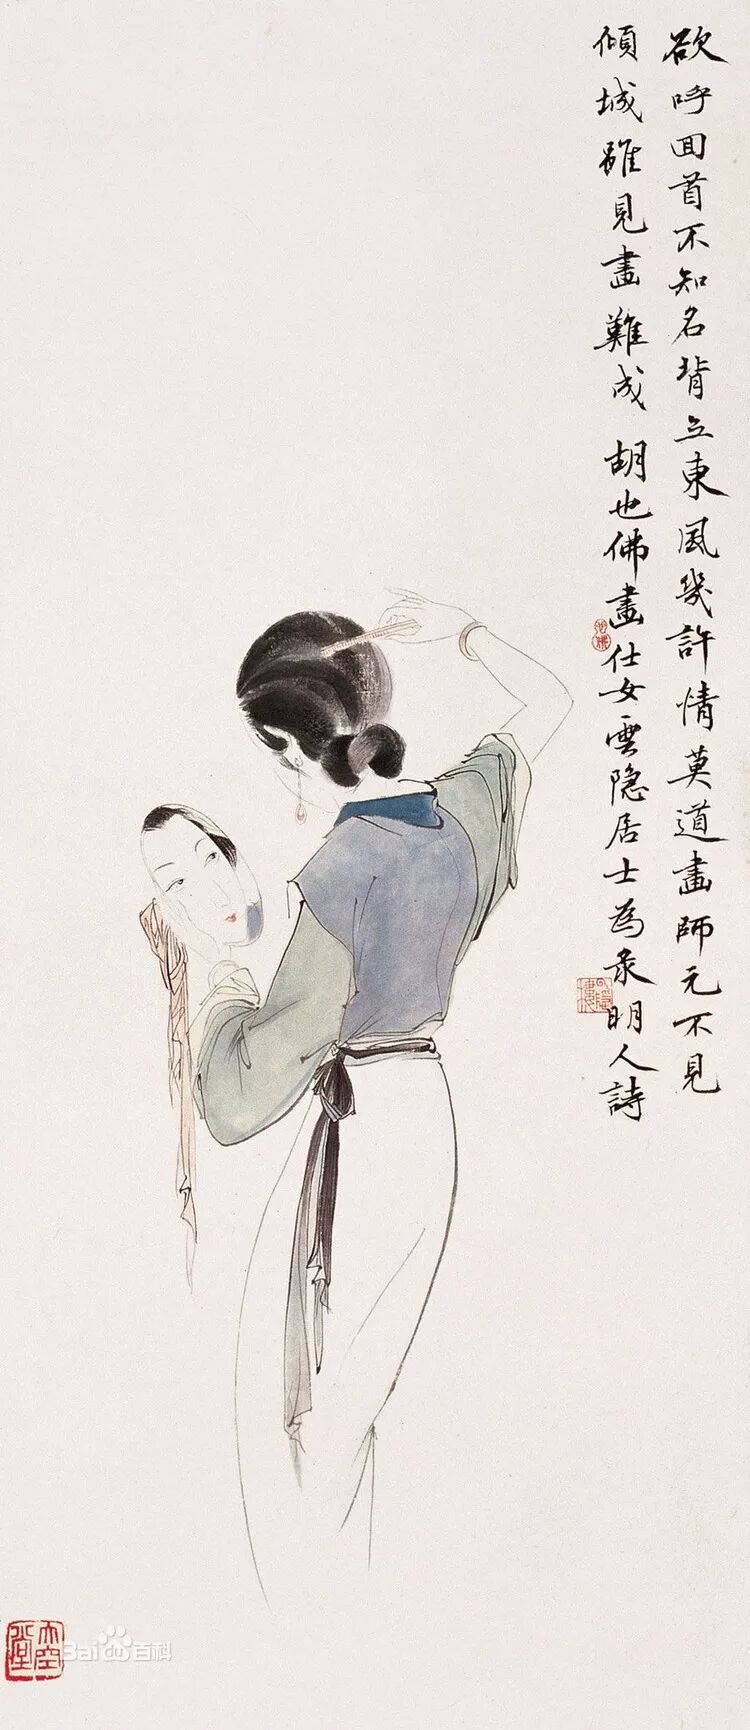 欲呼回首不知名背立東風幾許情莫道畫師元不見
傾城雖見畫難成 胡也佛畫仕女雲隐居士為录明人詩
也佛
大空堂
Baidu百科